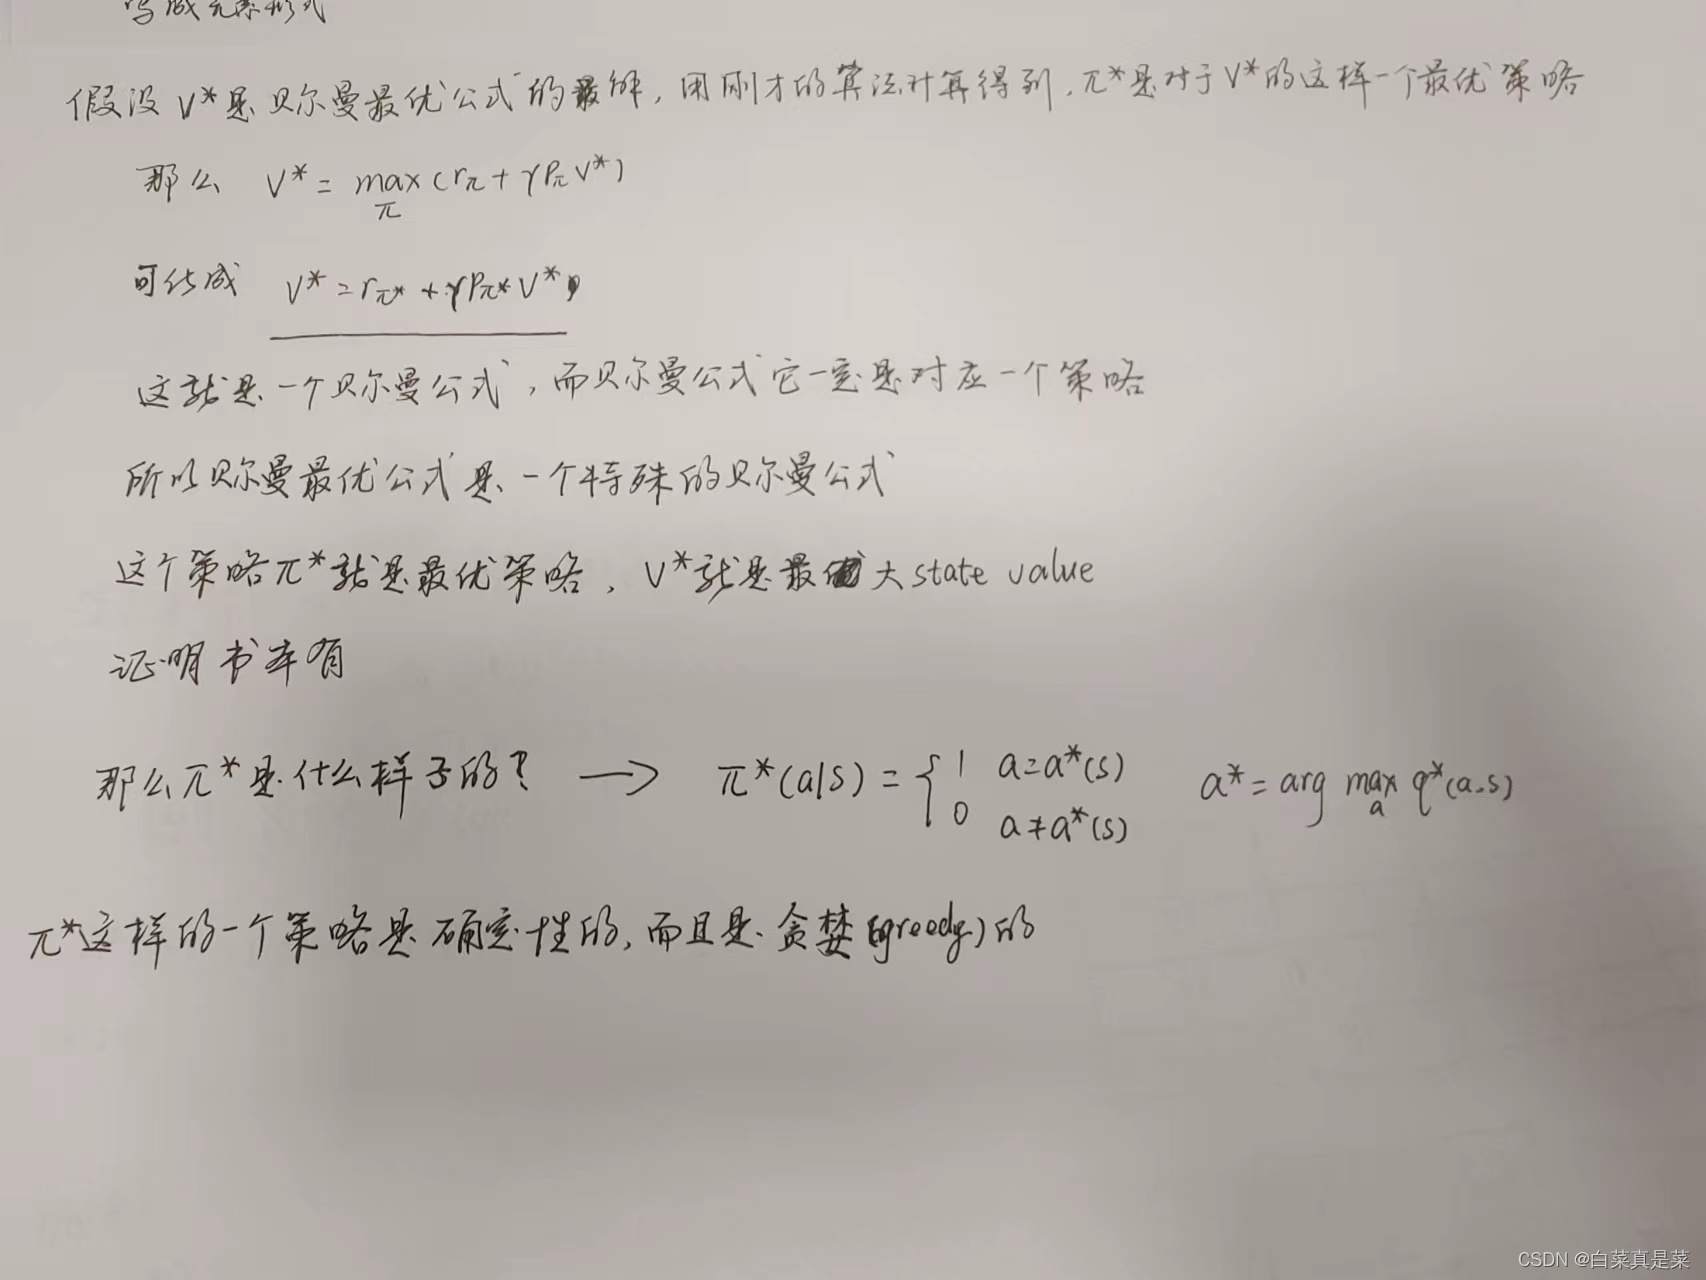 写成元素形式
假设 V*是贝尔曼最优公式的最解，用刚才的算法计算得到，π*是对于V*的这样一个最优策略
那么 V* = max (rπ + γPπV*)
π
可化成 V* = rπ* + γPπ* V*
这就是一个贝尔曼公式，而贝尔曼公式它一定是对应一个策略
所以贝尔曼最优公式是一个特殊的贝尔曼公式
这个策略π*就是最优策略，V*就是最大state value
证明书本有
那么π*是什么样子的？ → π*(a|s) = { 1 a=a*(s) a* = arg max q*(a.s)
0 a≠a*(s) a
π*这样的一个策略是确定性的，而且是贪婪(greedy)的
CSDN @白菜真是菜